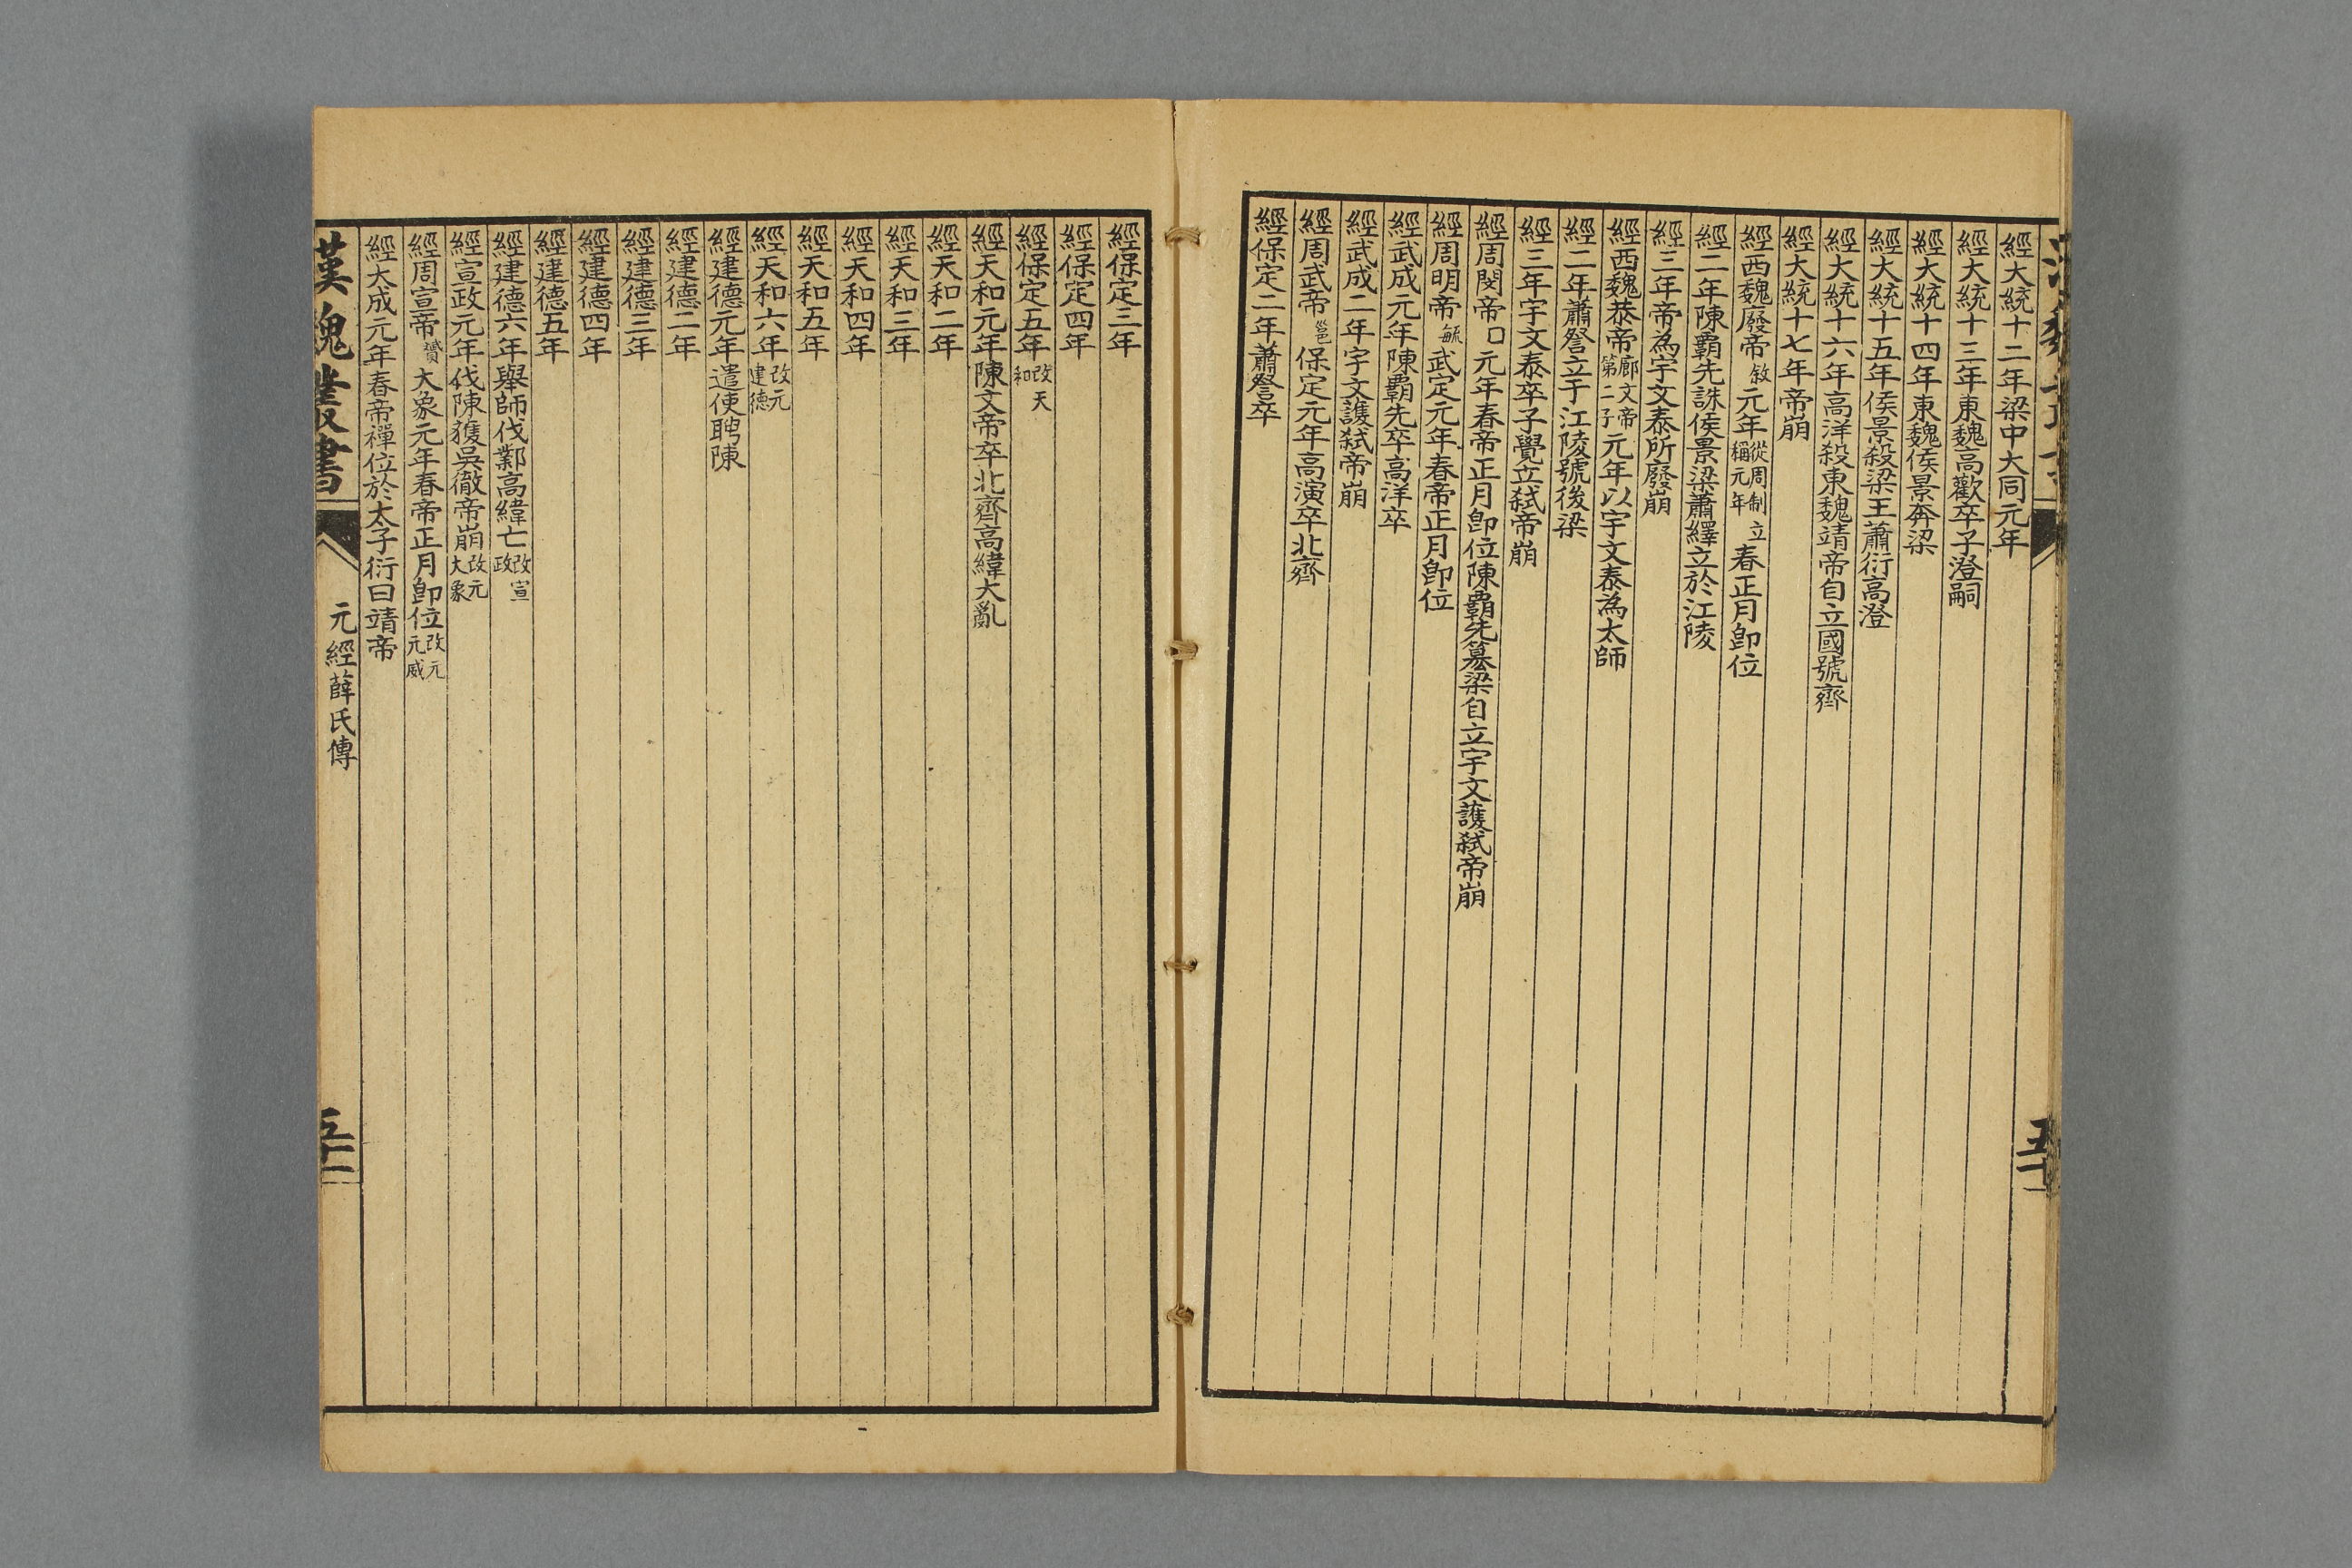 經大統十二年梁中大同元年
經大統十三年東魏高歡卒子澄嗣
經大統十四年東魏侯景奔梁
經大統十五年侯景殺梁王蕭衍高澄
經大統十六年高洋殺東魏靖帝自立國號齊
經大統十七年帝崩
經西魏廢帝敘元年從周制立稱元年春正月卽位
經二年陳霸先誅侯景梁蕭繹立於江陵
經三年帝為宇文泰所廢崩
經西魏恭帝廓文帝第二子元年以宇文泰為太師
經二年蕭詧立于江陵號後梁
經三年宇文泰卒子覺立弒帝崩
經周閔帝口元年春帝正月卽位陳霸先篡梁自立宇文護弒帝崩
經周明帝毓武定元年春帝正月卽位
經武成元年陳霸先卒高洋卒
經武成二年宇文護弒帝崩
經周武帝邕保定元年高演卒北齊
經保定二年蕭詧卒
五十
經保定三年
經保定四年
經保定五年改天和
經天和元年陳文帝卒北齊高緯大亂
經天和二年
經天和三年
經天和四年
經天和五年
經天和六年改元建德
經建德元年遣使聘陳
經建德二年
經建德三年
經建德四年
經建德五年
經建德六年舉師伐鄴高緯亡改宣政
經宣政元年伐陳獲吳徹帝崩改元大象
經周宣帝贇大象元年春帝正月卽位改元元威
經大成元年春帝禪位於太子衍曰靖帝
漢魏叢書
元經薛氏傳
五十一